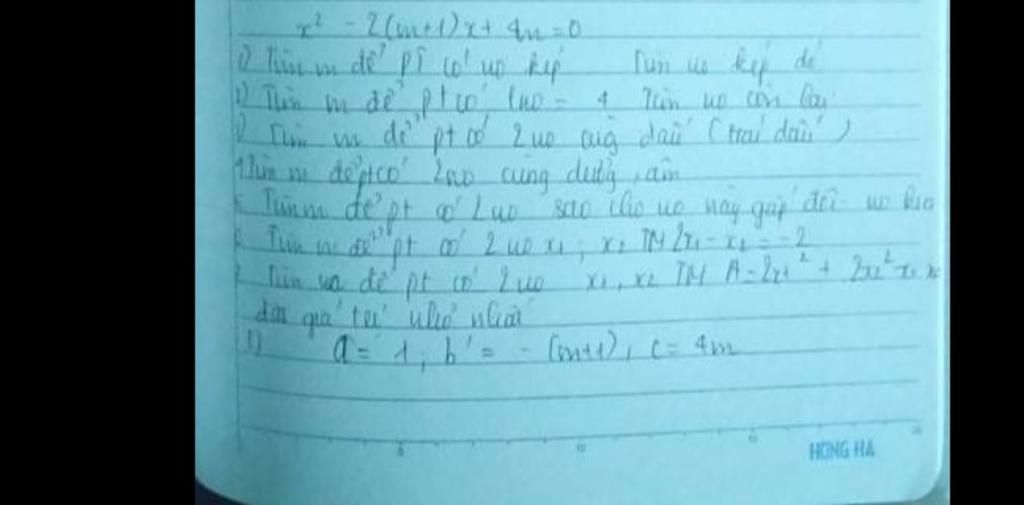 x² - 2(m+1)x + 4m = 0
1) Tìm m để PT có no kép Tìm no kép đó
2) Tìm m để pt có 1 no = 4 Tìm no còn lại
3) Tìm m để pt có 2 no cùng dấu (trái dấu)
4 Tìm m để pt có 2 no cùng dương, âm
5. Tìm m để pt có 2 no sao cho no này gấp đôi no kia
6. Tìm m để pt có 2 no x1; x2 TM 2x1 - x2 = -2
7. Tìm m để pt có 2 no x1, x2 TM A = 2x1² + 2x2² - x1 x2
đạt giá trị nhỏ nhất
1) a = 1, b' = - (m+1), c = 4m
HONG HA